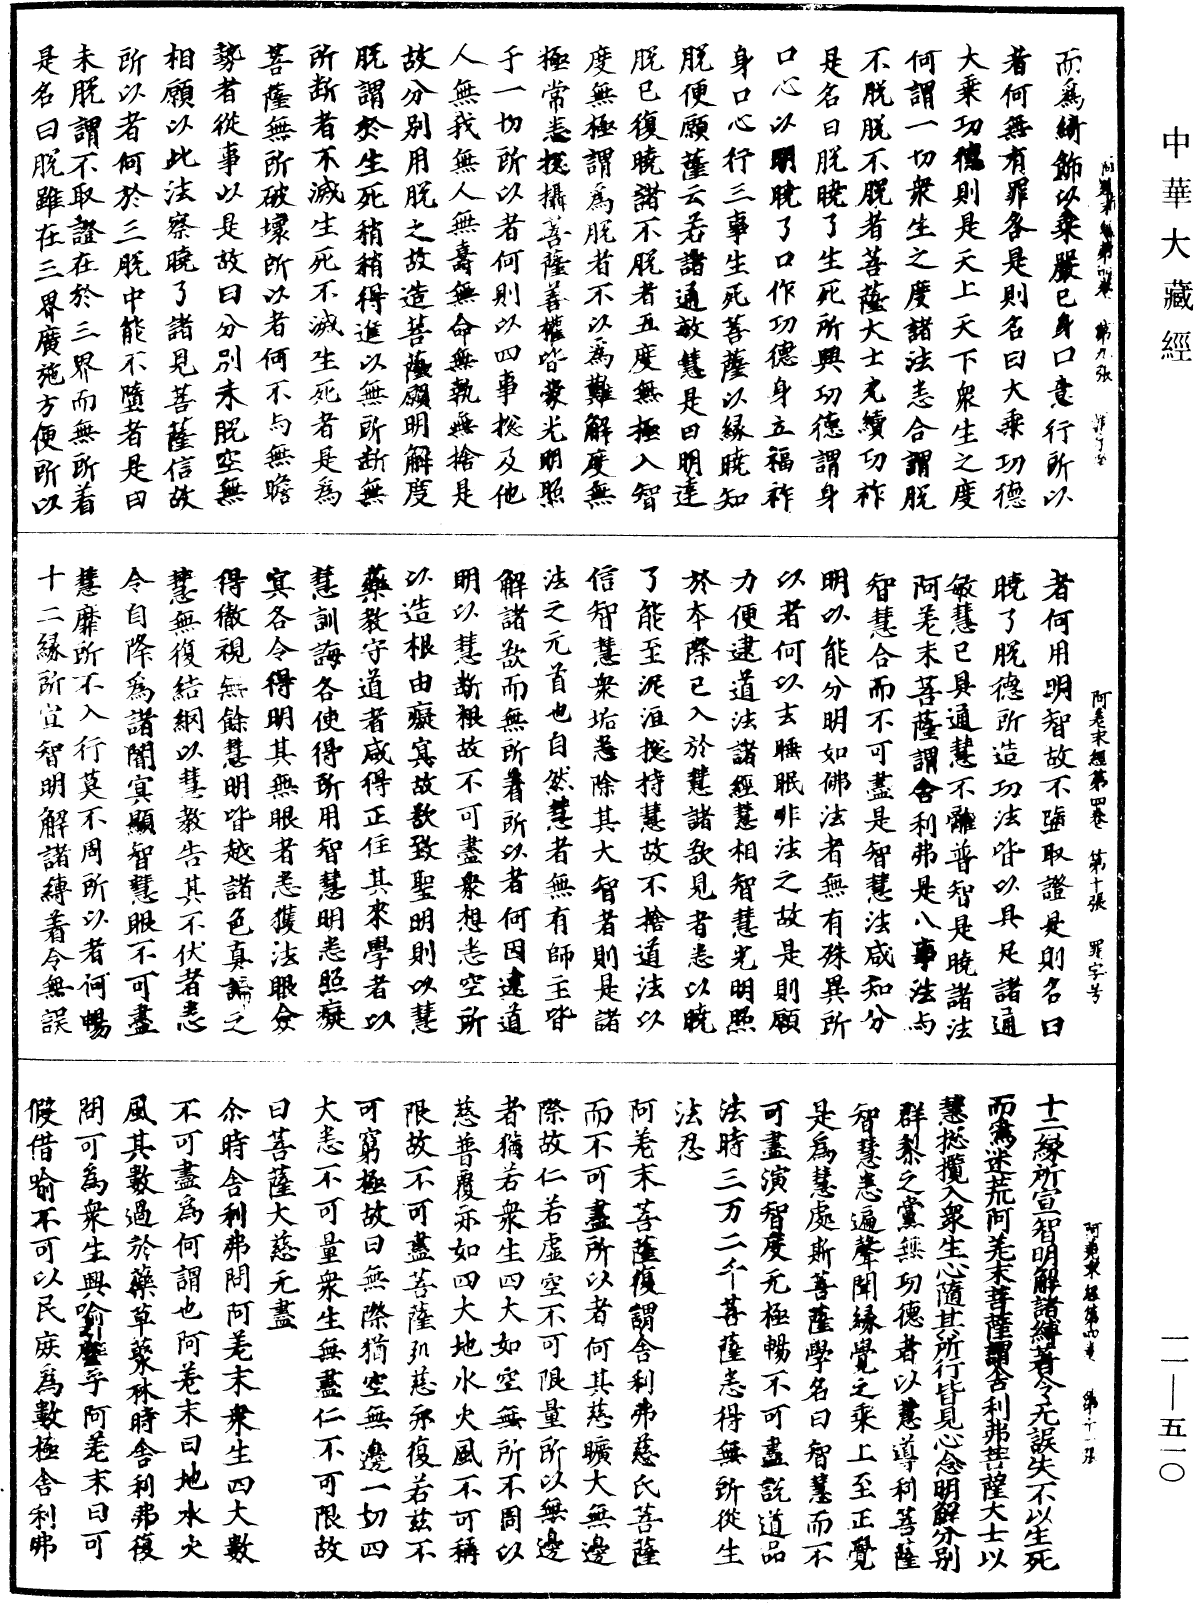 中華大藏經
而爲綺飾以乘嚴已身口意行所以
者何無有罪各是則名曰大乘功德
大乘功德則是天上天下衆生之度
何謂一切衆生之度諸法悉合謂脫
不脫脫不脫者菩薩大士先續功祚
是名曰脫曉了生死所興功德謂身
口心以明曉了口作功德身立福祚
身口心行三事生死菩薩以緣曉知
脫便願薩云若諸通敏慧是曰明達
脫已復曉諸不脫者五度無極入智
度無極謂爲脫者不以爲難解度無
極常悉揔攝菩薩善權皆蒙光明照
于一切所以者何則以四事揔及他
人無我無人無壽無命無執無捨是
故分別用脫之故造菩薩願明解度
脫謂於生死稍稍得進以無所斷無
所斷者不滅生死不滅生死者是爲
菩薩無所破壞所以者何不与無瞻
勢者從事以是故曰分別未脫空無
相願以此法察曉了諸見菩薩信故
所以者何於三脫中能不墮者是曰
未脫謂不取證在於三界而無所着
是名曰脫雖在三界廣施方便所以
阿差末經第四卷 第十張 罪字号
者何用明智故不墮取證是則名曰
曉了脫德所造功法皆以具足諸通
敏慧已具通慧不離普智是曉諸法
阿差末菩薩謂舍利弗是八事法与
智慧合而不可盡是智慧法咸知分
明以能分明如佛法者無有殊異所
以者何以去睡眠非法之故是則願
力便逮道法諸經慧相智慧光明照
於本際已入於慧諸欲見者悉以曉
了能至泥洹揔持慧故不捨道法以
信智慧衆垢悉除其大智者則是諸
法之元首也自然慧者無有師主皆
解諸欲而無所著所以者何因逮道
明以慧斷根故不可盡衆想悉空所
以造根由癡冥故欲致聖明則以慧
藥教守道者咸得正住其來學者以
慧訓誨各使得所用智慧明悉照癡
冥各令得明其無眼者悉獲法眼僉
得徹視無餘慧明皆越諸色真諦之
慧無復結網以慧教告其不伏者悉
令自降爲諸闇冥顯智慧眼不可盡
慧靡所不入行莫不周所以者何暢
十二緣所宣智明解諸縛着令無誤
阿差末經第四卷 第十一張
十二緣所宣智明解諸縛著令无誤失不以生死
而爲迷荒阿差末菩薩謂舍利弗菩薩大士以
慧揔攬入衆生心隨其所行皆見心念明解分別
群黎之黨無功德者以慧導利菩薩
智慧悉遍聲聞緣覺之乘上至正覺
是爲慧處斯菩薩學名曰智慧而不
可盡演智度无極暢不可盡說道品
法時三万二千菩薩悉得無所從生
法忍
阿差末菩薩復謂舍利弗慈氏菩薩
而不可盡所以者何其慈曠大無邊
際故仁若虛空不可限量所以無邊
者猶若衆生四大如空無所不周以
慈普覆亦如四大地水火風不可稱
限故不可盡菩薩弘慈亦復若茲不
可窮極故曰無際猶空無邊一切四
大悉不可量衆生無盡仁不可限故
曰菩薩大慈无盡
尒時舍利弗問阿差末衆生四大數
不可盡爲何謂也阿差末曰地水火
風其數過於藥草藂林時舍利弗復
問可為衆生興喻引譬乎阿差末曰可
假借喻不可以民庶爲數極舍利弗
一一—五一〇